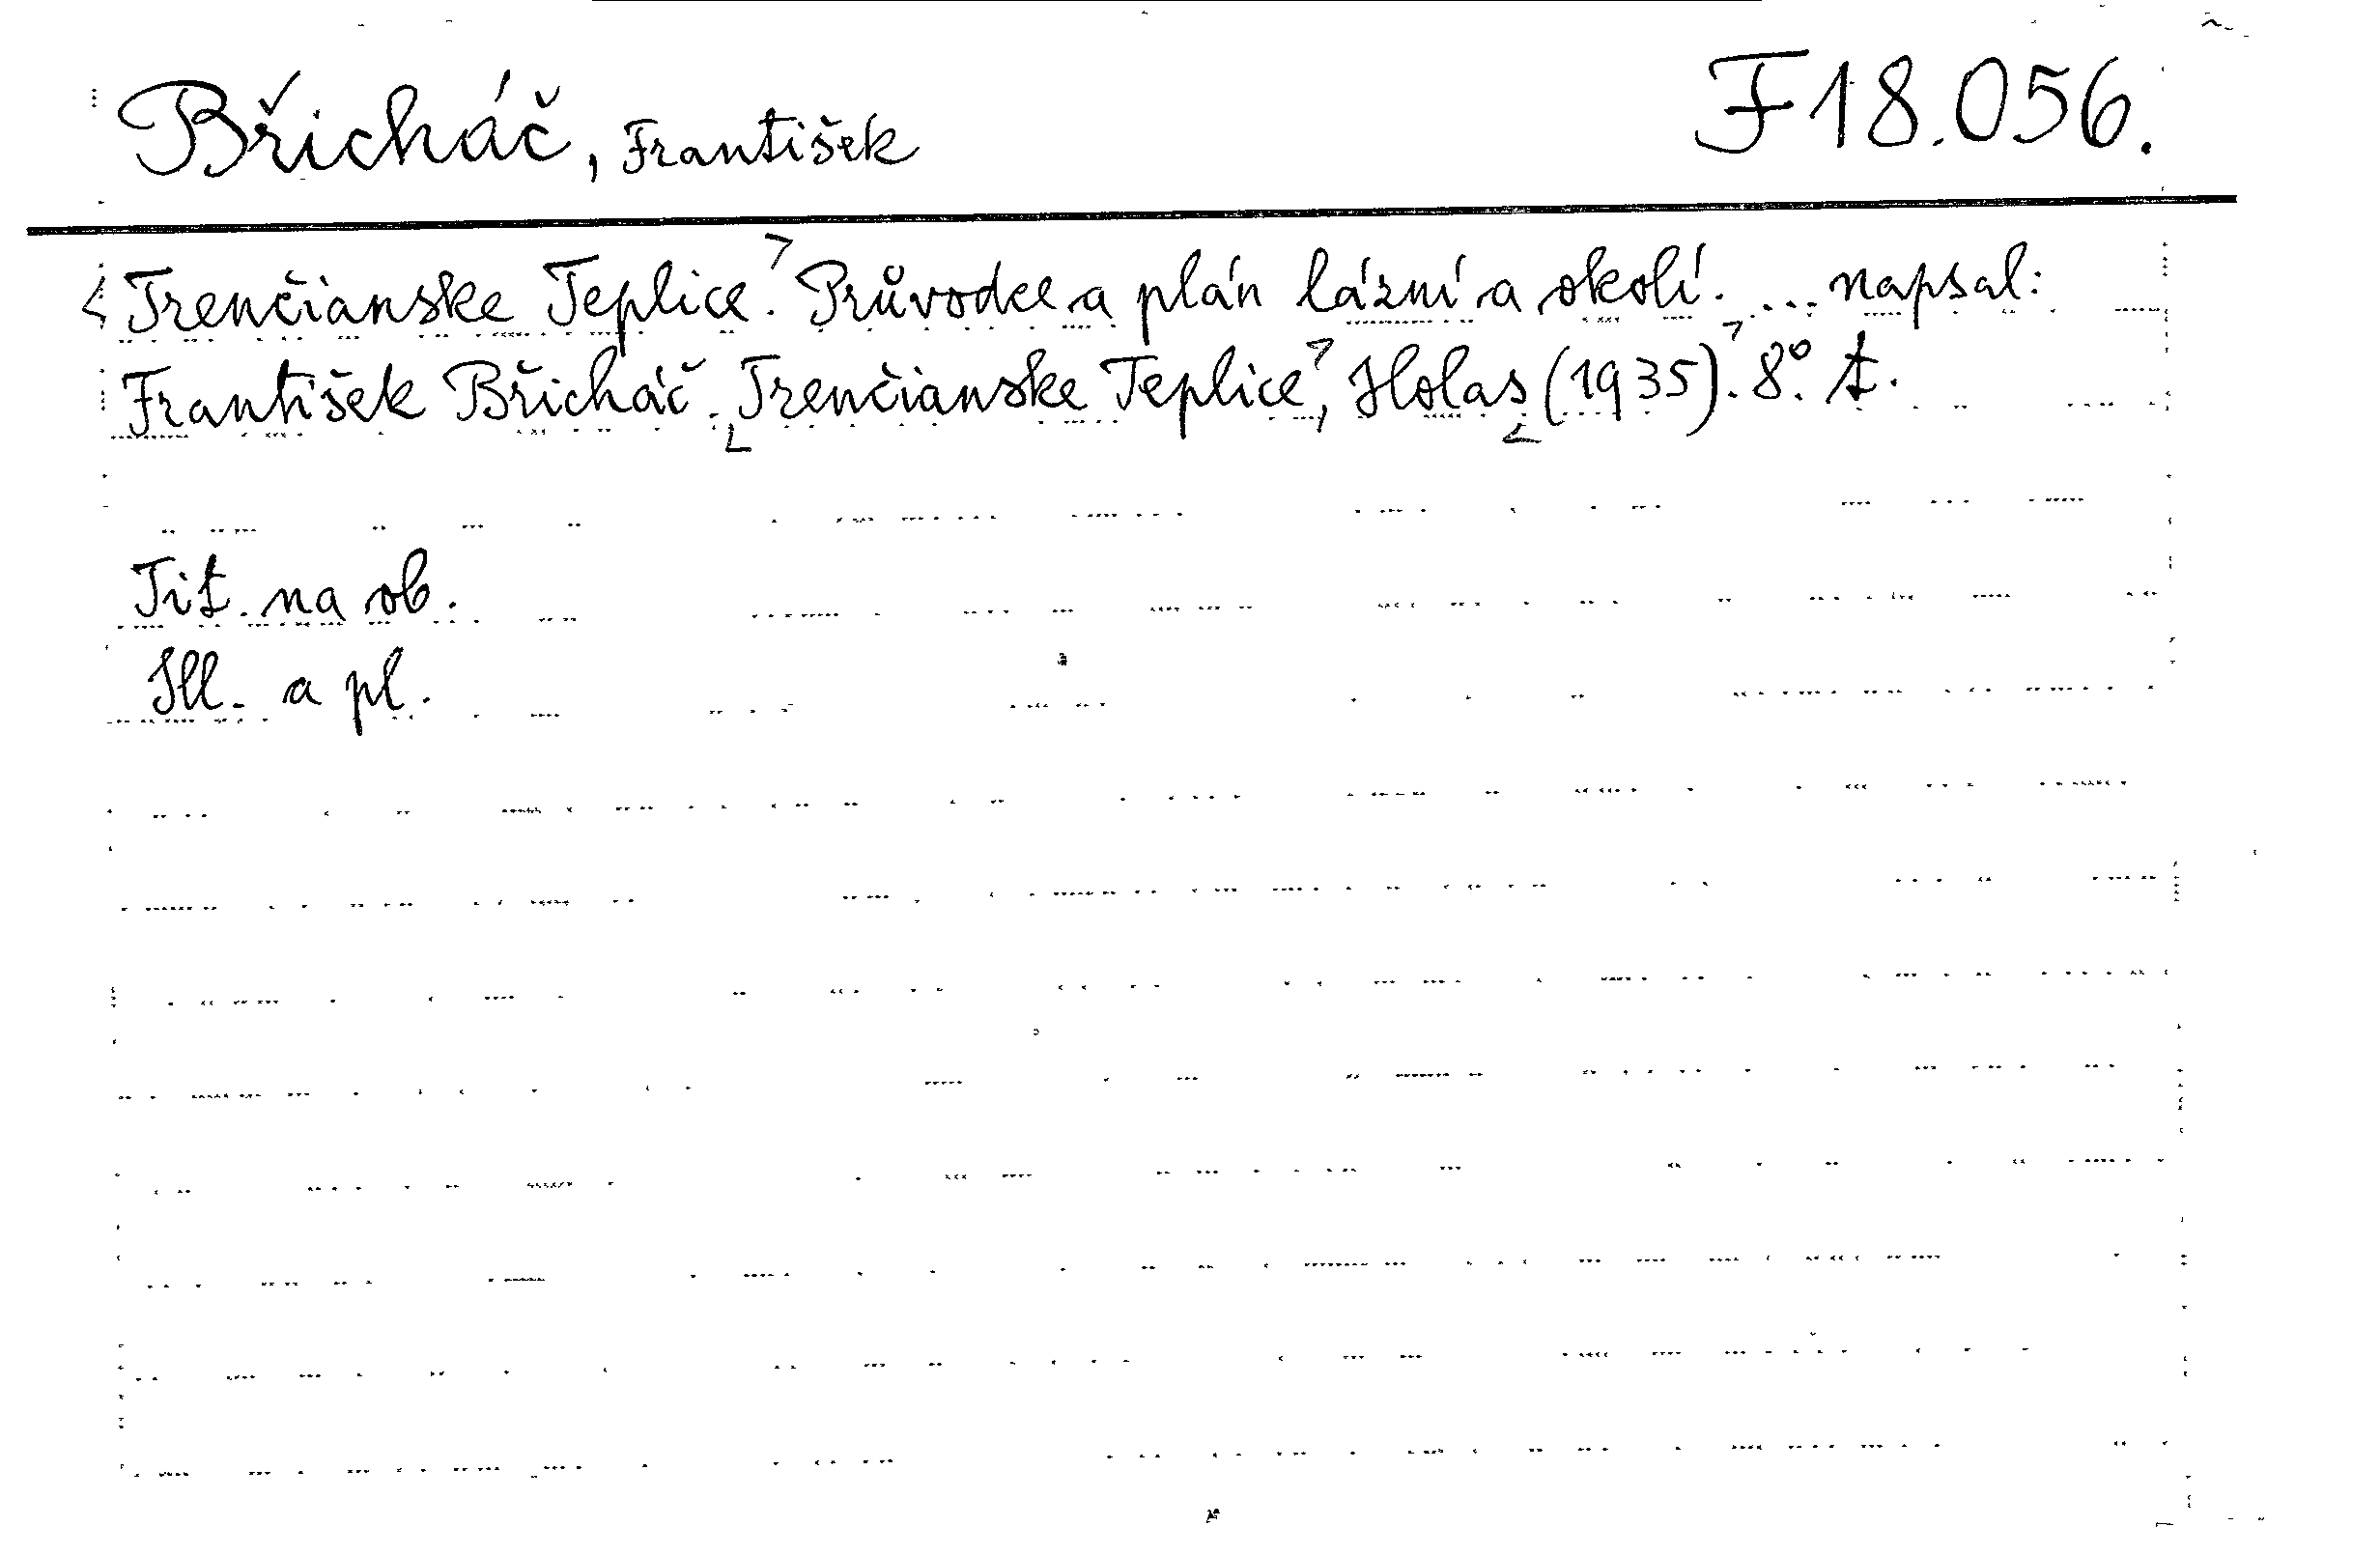 Břicháč, František F 18.056.
<Trenčianske Teplice.> Průvodce a plán lázní a okolí. ... napsal:
František Břicháč. <Trenčianske Teplice>, Holas <(1935)>. 8°. t.
Tit. na ob.
Ill. a pl.